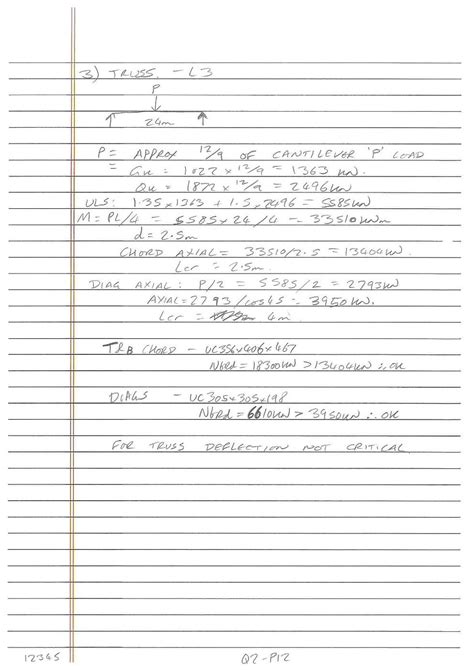 3) TRUSS. - L3
P
24m
P = APPROX 12/9 OF CANTILEVER 'P' LOAD
= Gk = 1022 x 12/9 = 1363 kN.
Qk = 1872 x 12/9 = 2496kN
ULS: 1.35x1363 + 1.5x2496 = 5585kN
M = PL/4 = 5585x24/4 = 33510kNm
d = 2.5m
CHORD AXIAL = 33510/2.5 = 13404kN.
Lcr = 2.5m.
DIAG AXIAL: P/2 = 5585/2 = 2793kN
AXIAL = 2793/cos45 = 3950kN.
Lcr = 4m.
T&B CHORD - UC356x406x467
Nbrd = 18300kN > 13404kN ∴ OK
DIAGS - UC305x305x198
Nbrd = 6610kN > 3950kN ∴ OK
FOR TRUSS DEFLECTION NOT CRITICAL
12345 Q2-P12